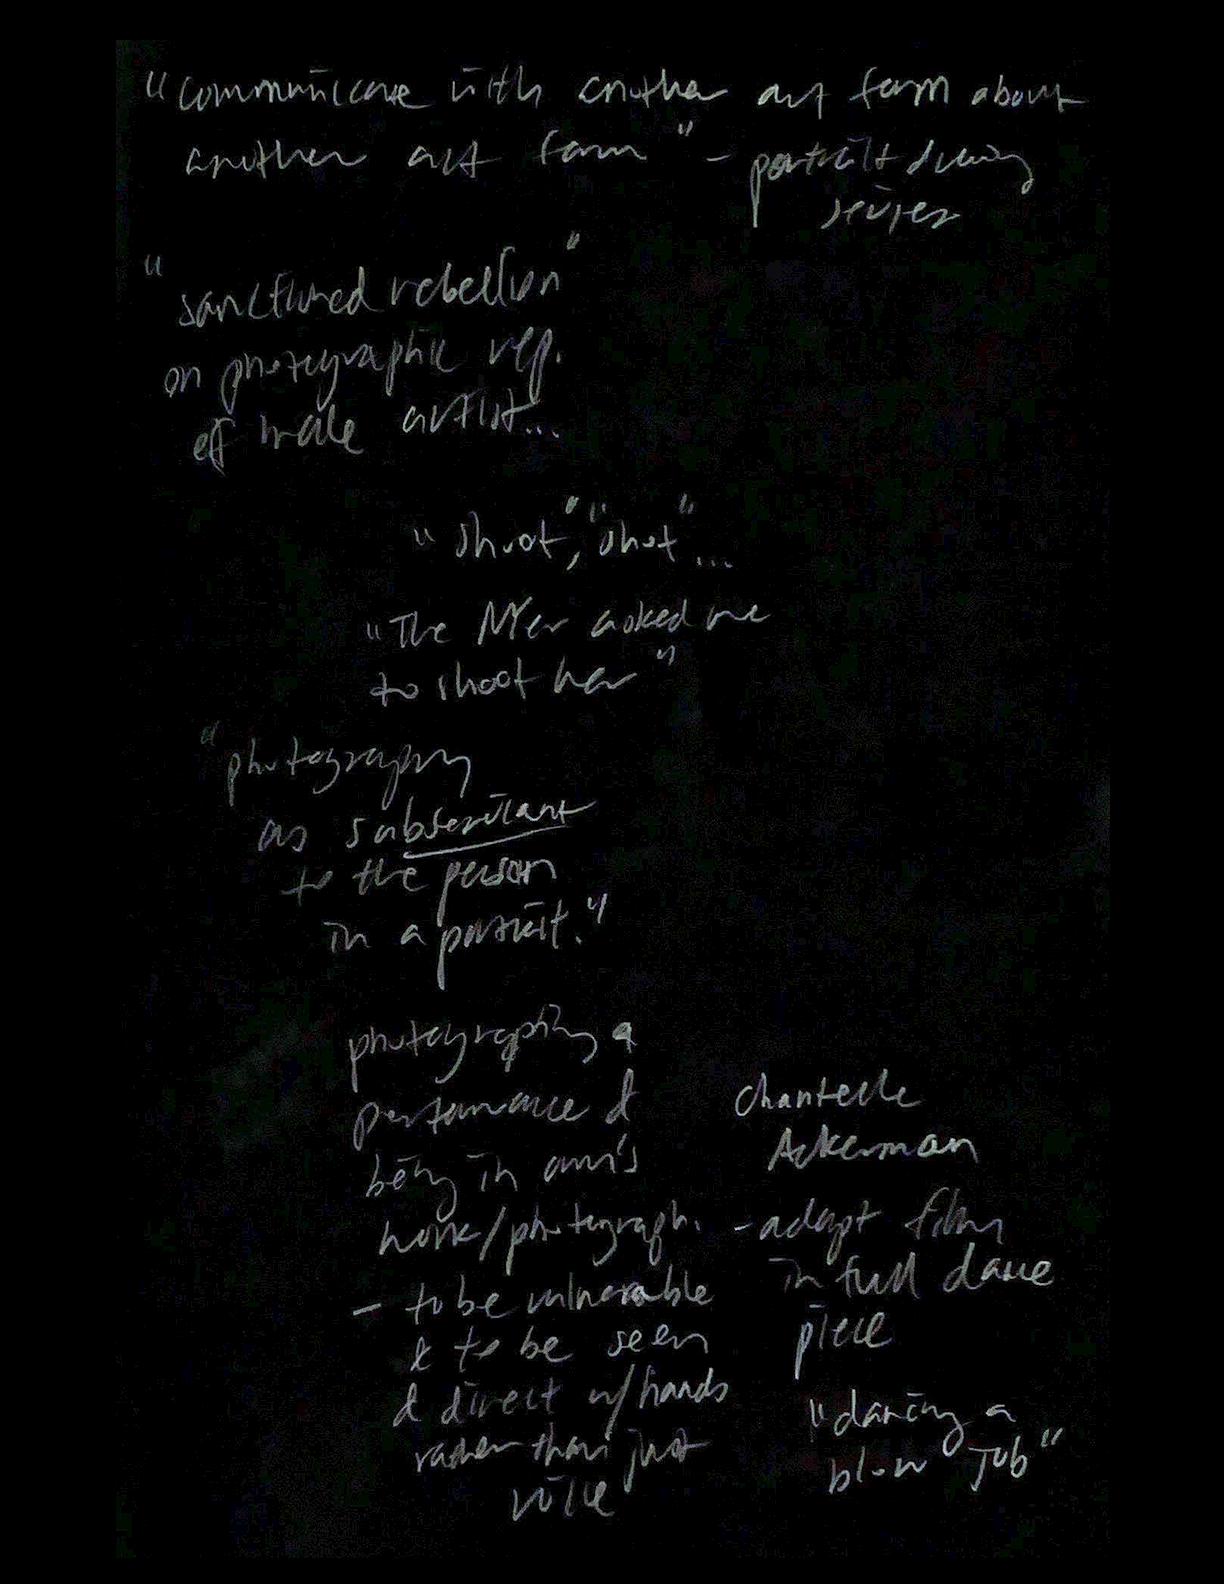 "communicate with another art form about
another art form" - portrait drawing
series
"sanctioned rebellion"
on photographic rep.
of male artist...
"shoot", "shot"...
"The NYer asked me
to shoot her"
"photography
as subservient
to the person
in a portrait."
photography &
performance &
being in ann's
work/photograph.
- to be vulnerable
& to be seen
& direct w/ hands
rather than just
voice
Chantelle
Ackerman
- adapt film
in full dance
piece
"dancing a
blow job"